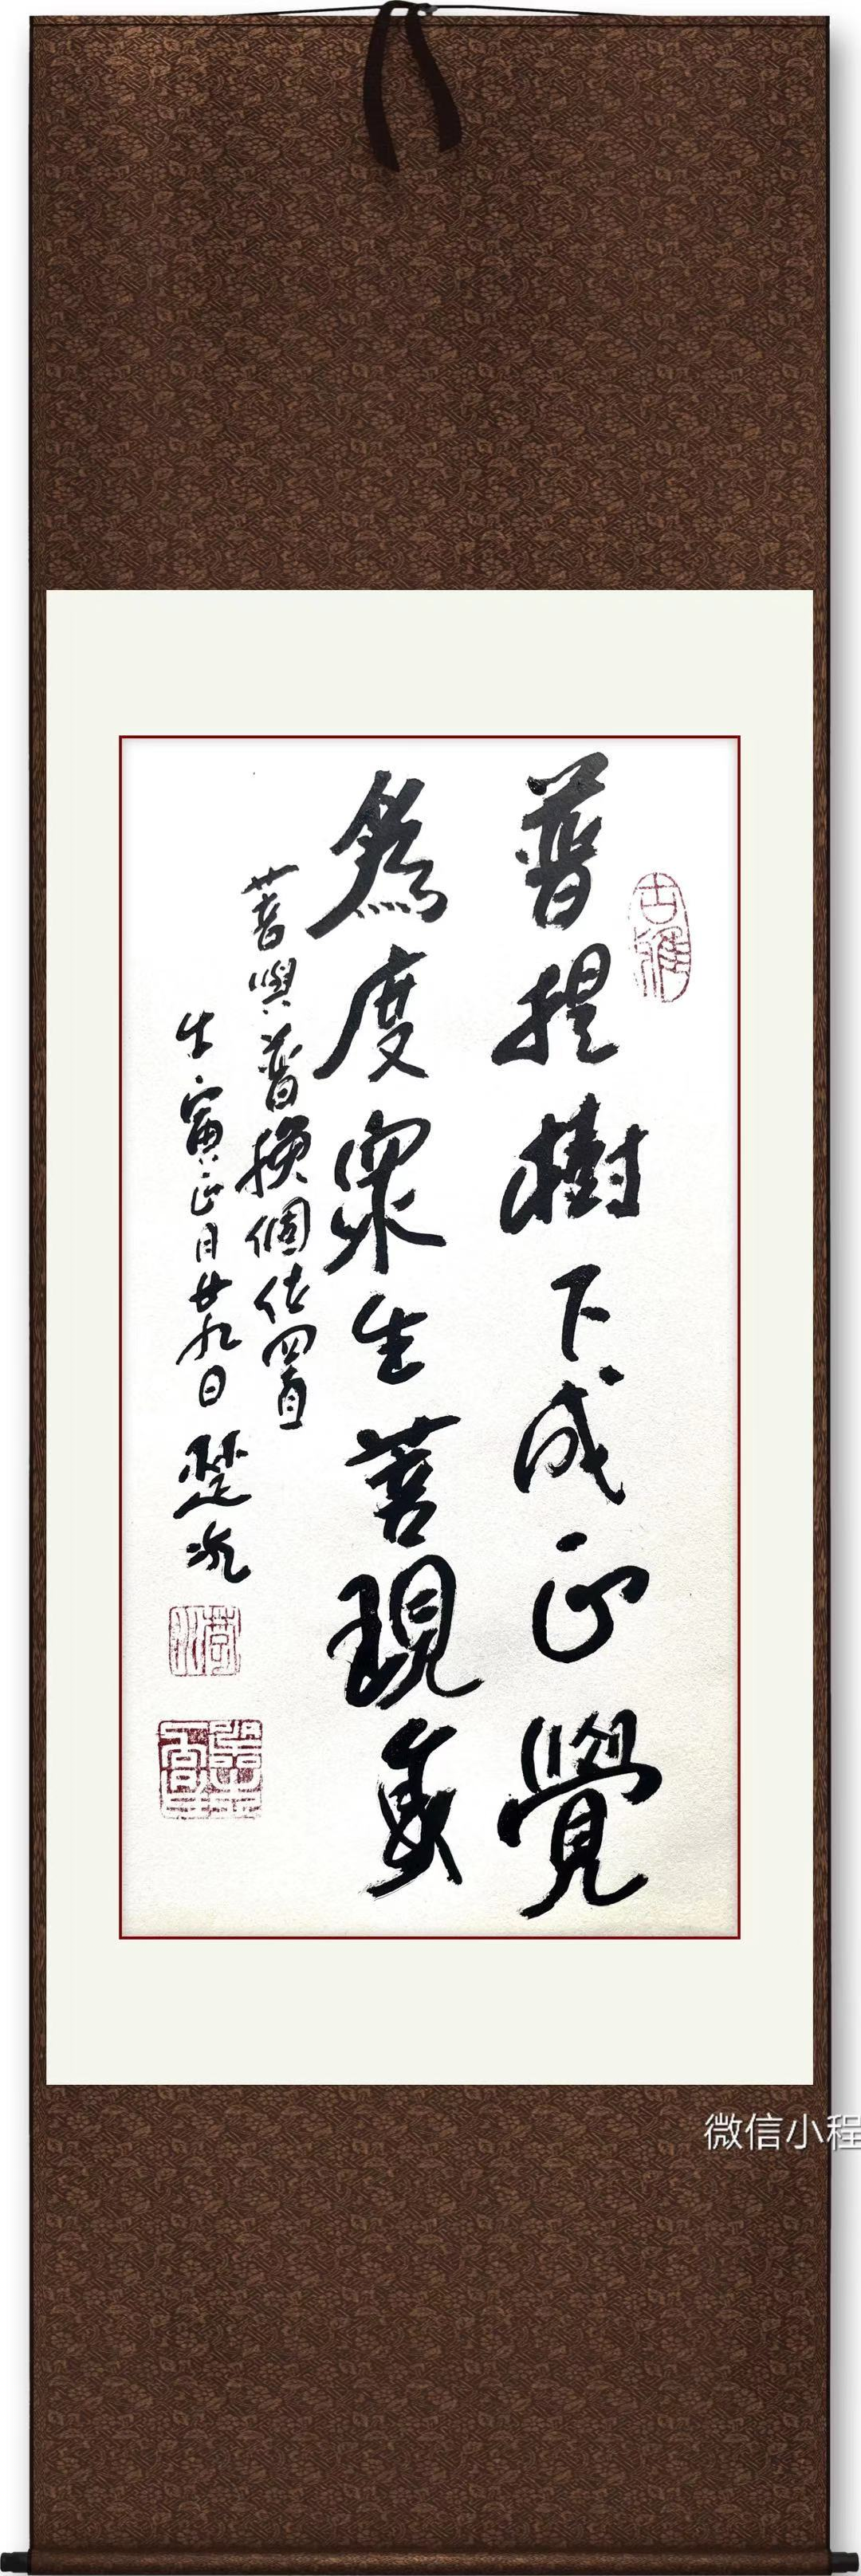 普提樹下成正覺
爲度眾生菩現真
菩與普換個位置
壬寅正月廿九日 楚水
微信小程